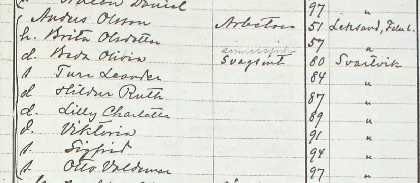 Daniel 97 "
Anders Olsson Arbetare 51 Leksand,
h. Brita Olsdotter 57 "
d. Beda Olivia Svagsint 80 Svartvik
s. Ture Leander 84 "
d Hildur Ruth 87 "
d. Lilly Charlotta 89 "
d. Viktoria 91 "
s. Sigfrid 94 "
s. Otto Valdemar 97 "